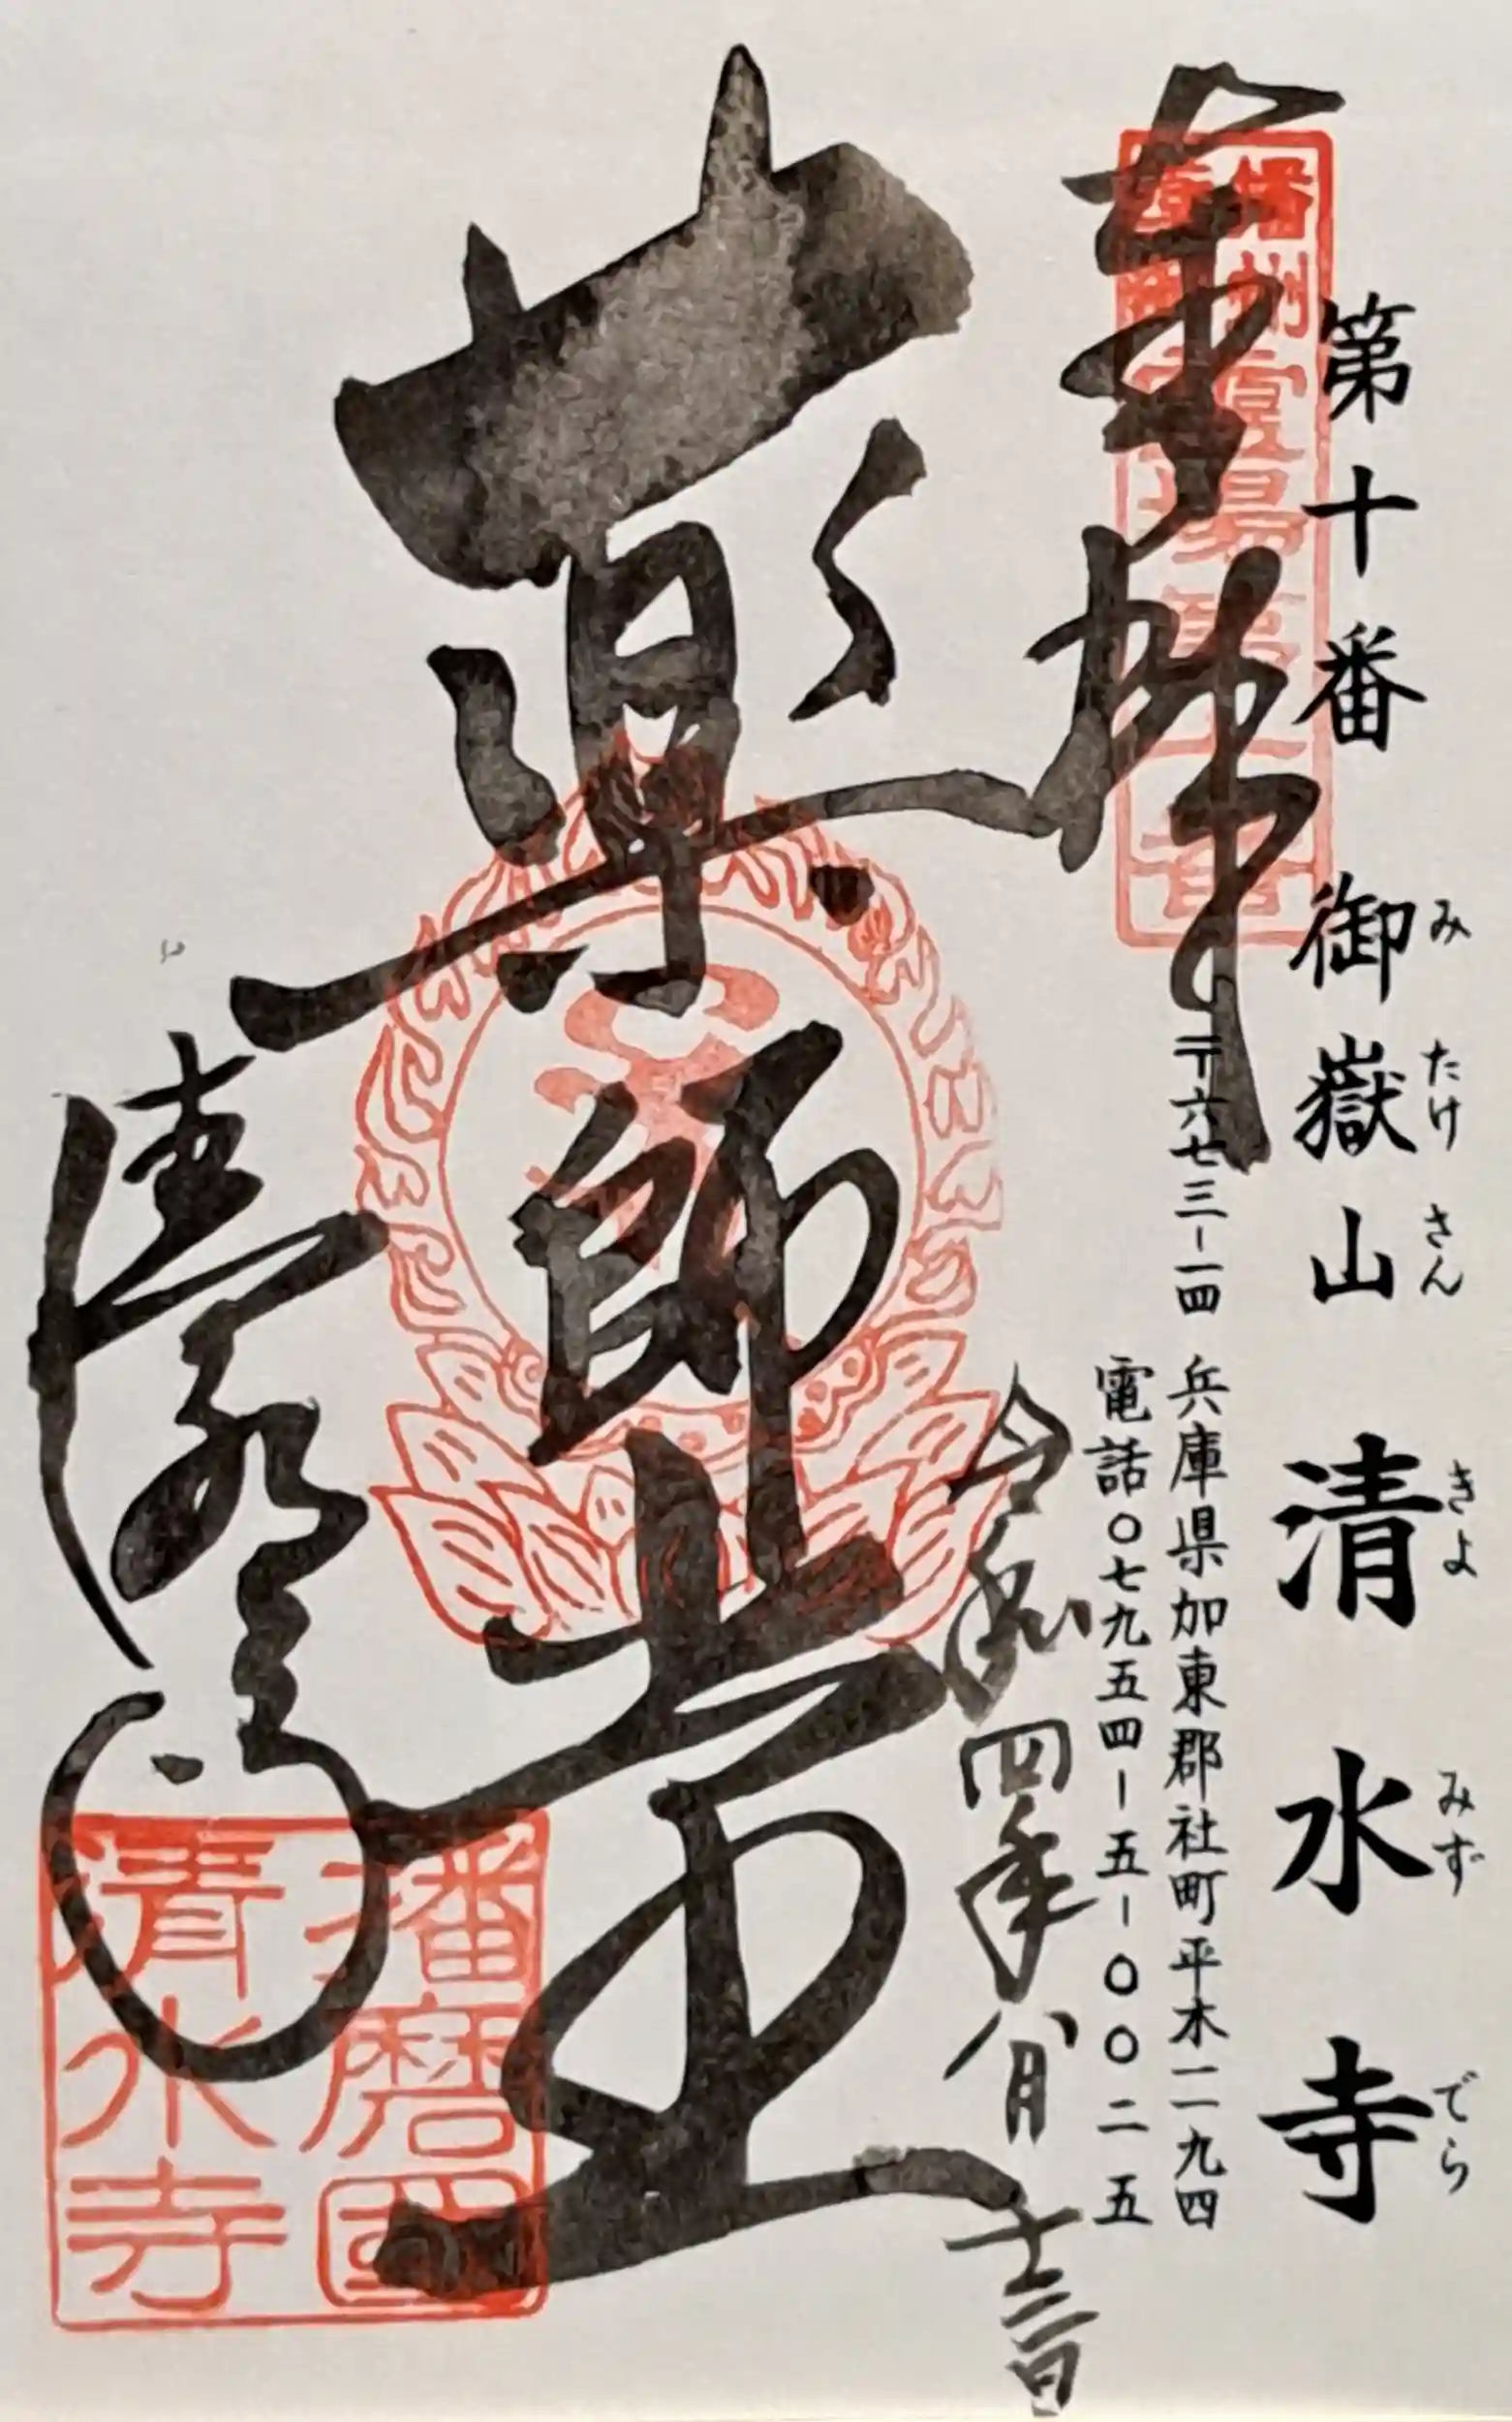 第十番 御嶽山 清水寺
み たけ さん きよ みず でら
〒六七三-一四 兵庫県加東郡社町平木一一九四
電話〇七九五四-五-〇〇二五
奉拝
令和四年八月十三日
薬師堂
清水寺
播磨國
清水寺